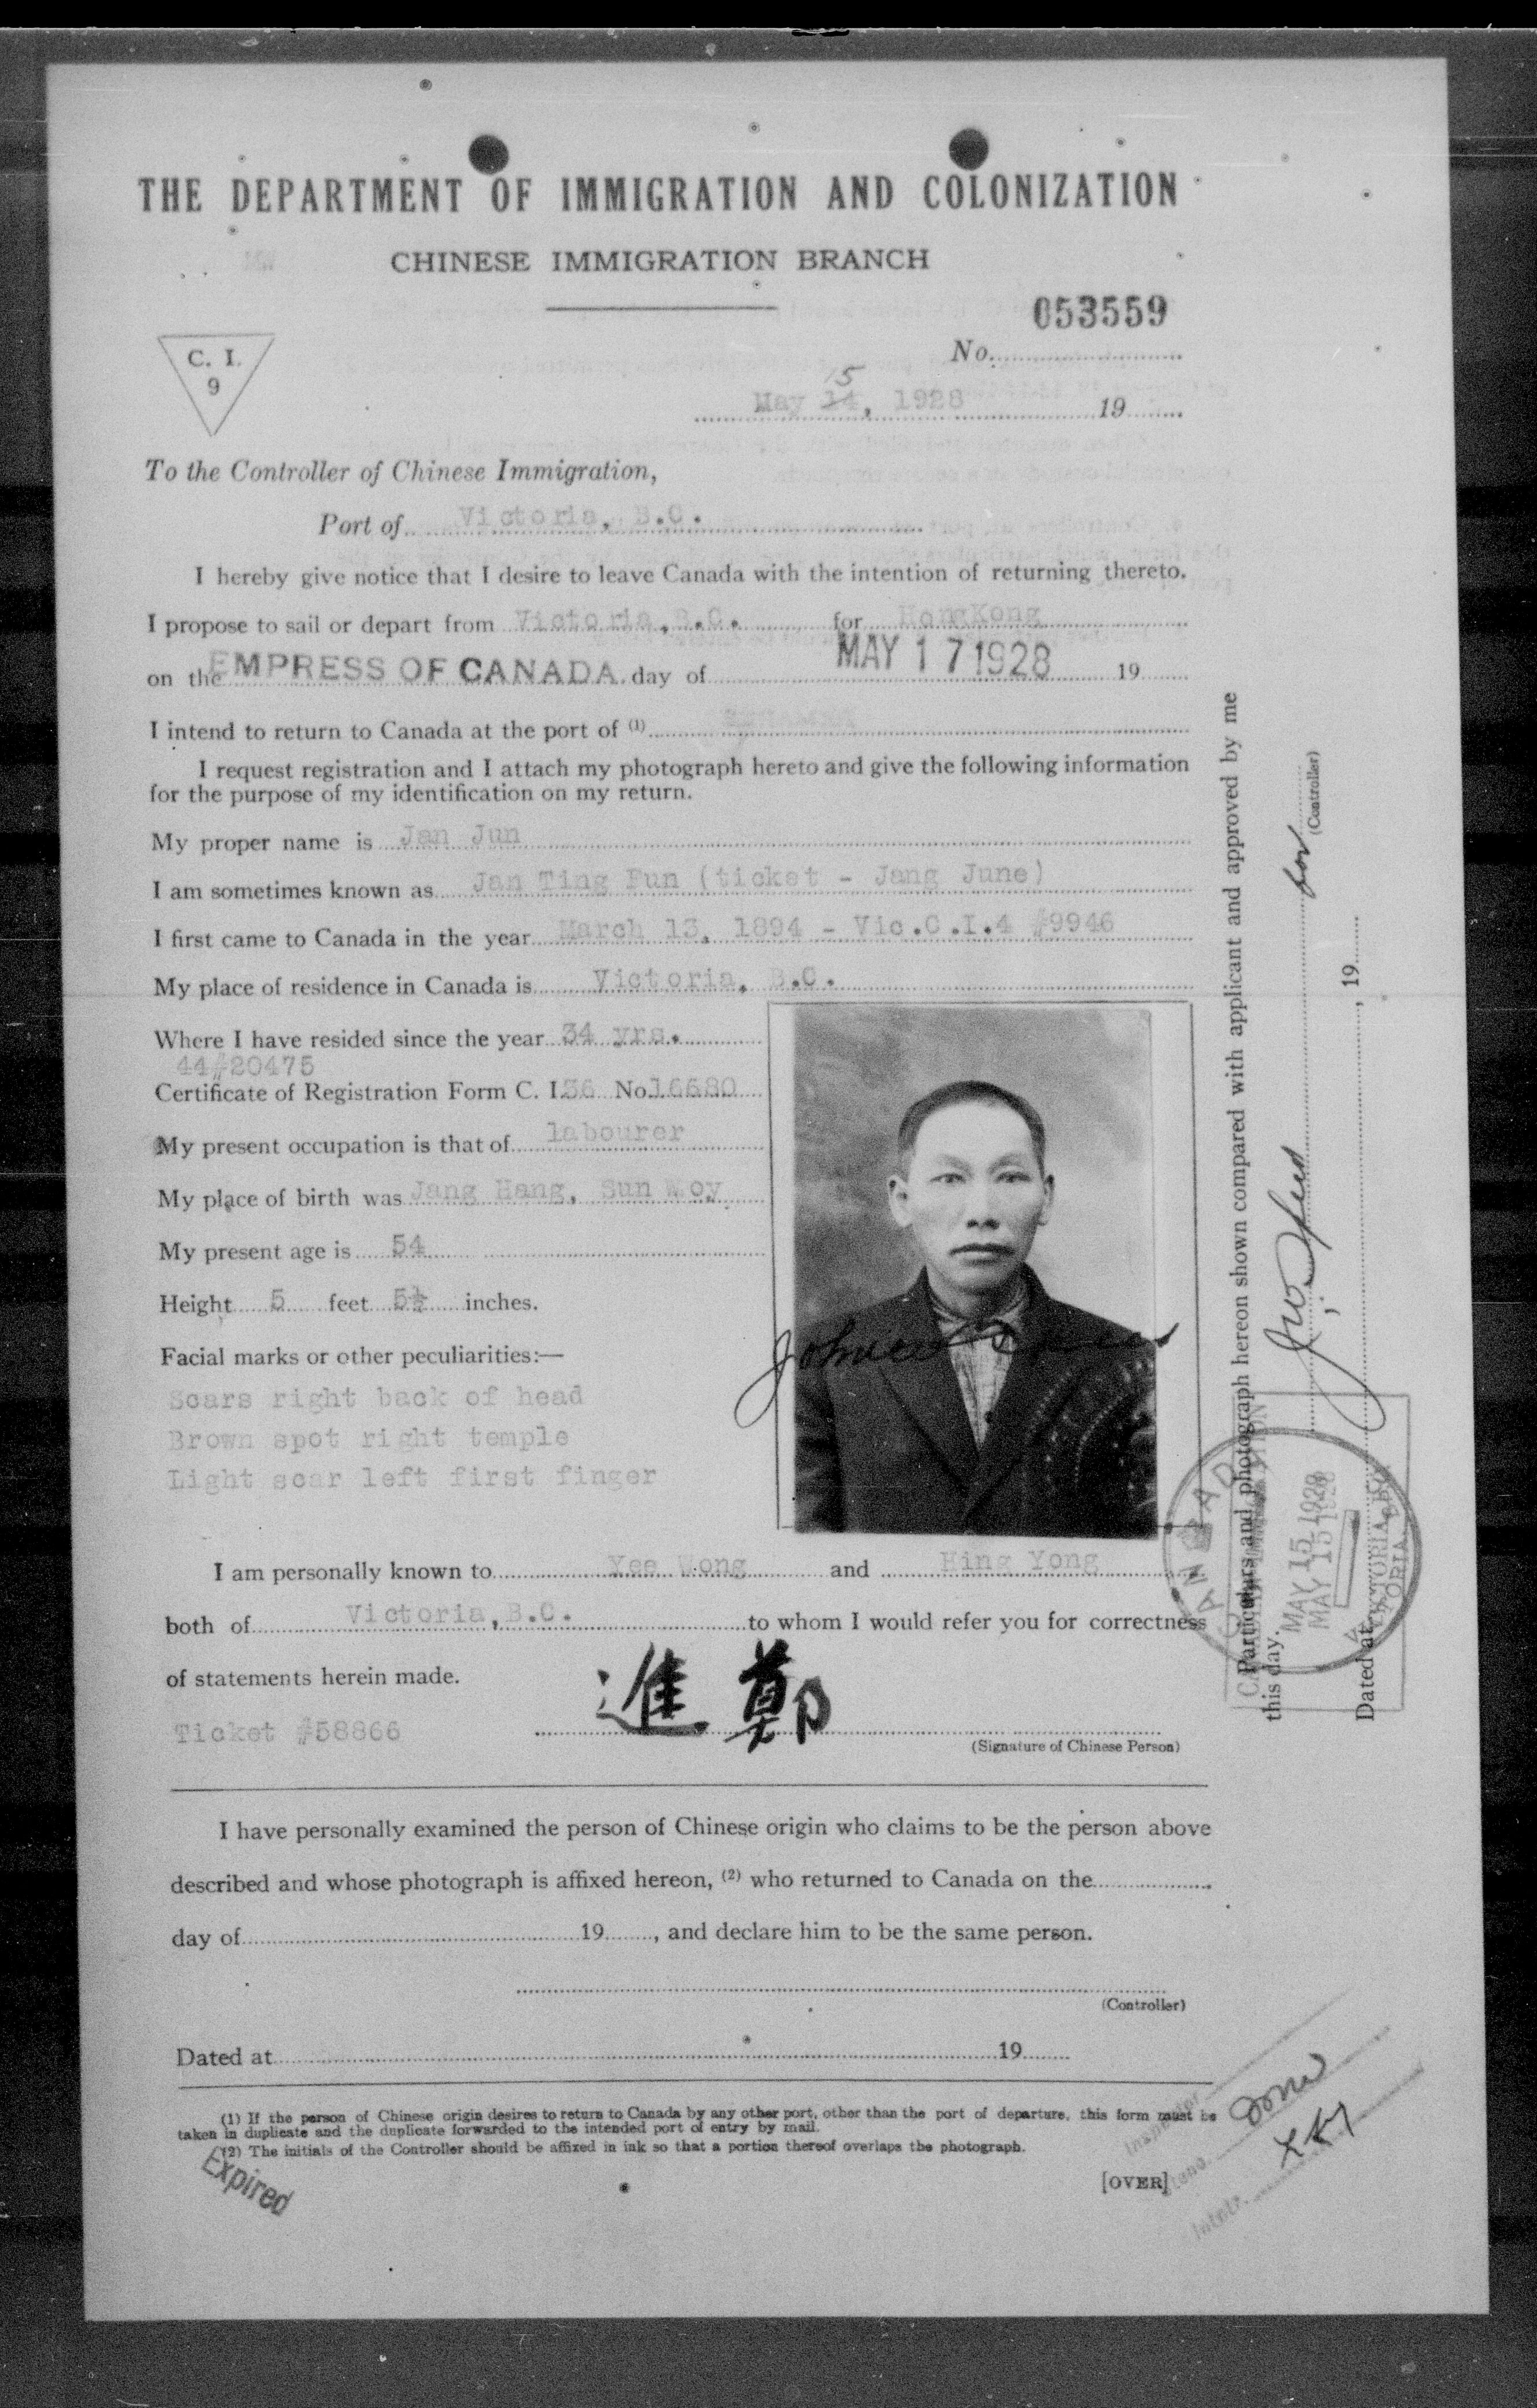 THE DEPARTMENT OF IMMIGRATION AND COLONIZATION
CHINESE IMMIGRATION BRANCH
053559
No.
C. I.
9
15
May 14, 1928 19
To the Controller of Chinese Immigration,
Port of Victoria, B.C.
I hereby give notice that I desire to leave Canada with the intention of returning thereto.
I propose to sail or depart from Victoria, B.C. for HongKong
on the EMPRESS OF CANADA day of MAY 17 1928 19
I intend to return to Canada at the port of (1)
I request registration and I attach my photograph hereto and give the following information
for the purpose of my identification on my return.
My proper name is Jan Jun
I am sometimes known as Jan Ting Fun (ticket - Jang June)
I first came to Canada in the year March 13, 1894 - Vic.C.I.4 #9946
My place of residence in Canada is Victoria, B.C.
Where I have resided since the year 34 yrs.
44#20475
Certificate of Registration Form C. I. 36 No. 16680
My present occupation is that of labourer
My place of birth was Jang Hang, Sun Woy
My present age is 54
Height 5 feet 5½ inches.
Facial marks or other peculiarities:—
Scars right back of head
Brown spot right temple
Light scar left first finger
I am personally known to Yee Wong and Hing Yong
both of Victoria, B.C. to whom I would refer you for correctness
of statements herein made.
進鄭
Ticket #58866
(Signature of Chinese Person)
I have personally examined the person of Chinese origin who claims to be the person above
described and whose photograph is affixed hereon, (2) who returned to Canada on the
day of 19, and declare him to be the same person.
(Controller)
Dated at 19
(1) If the person of Chinese origin desires to return to Canada by any other port, other than the port of departure, this form must be
taken in duplicate and the duplicate forwarded to the intended port of entry by mail.
(2) The initials of the Controller should be affixed in ink so that a portion thereof overlaps the photograph.
Expired
[OVER]
Inspector
Steno.
Intptr.
Particulars and photograph hereon shown compared with applicant and approved by me
this day.
for
(Controller)
Dated at , 19
MAY 15 1928
MAY 15 1928
VICTORIA